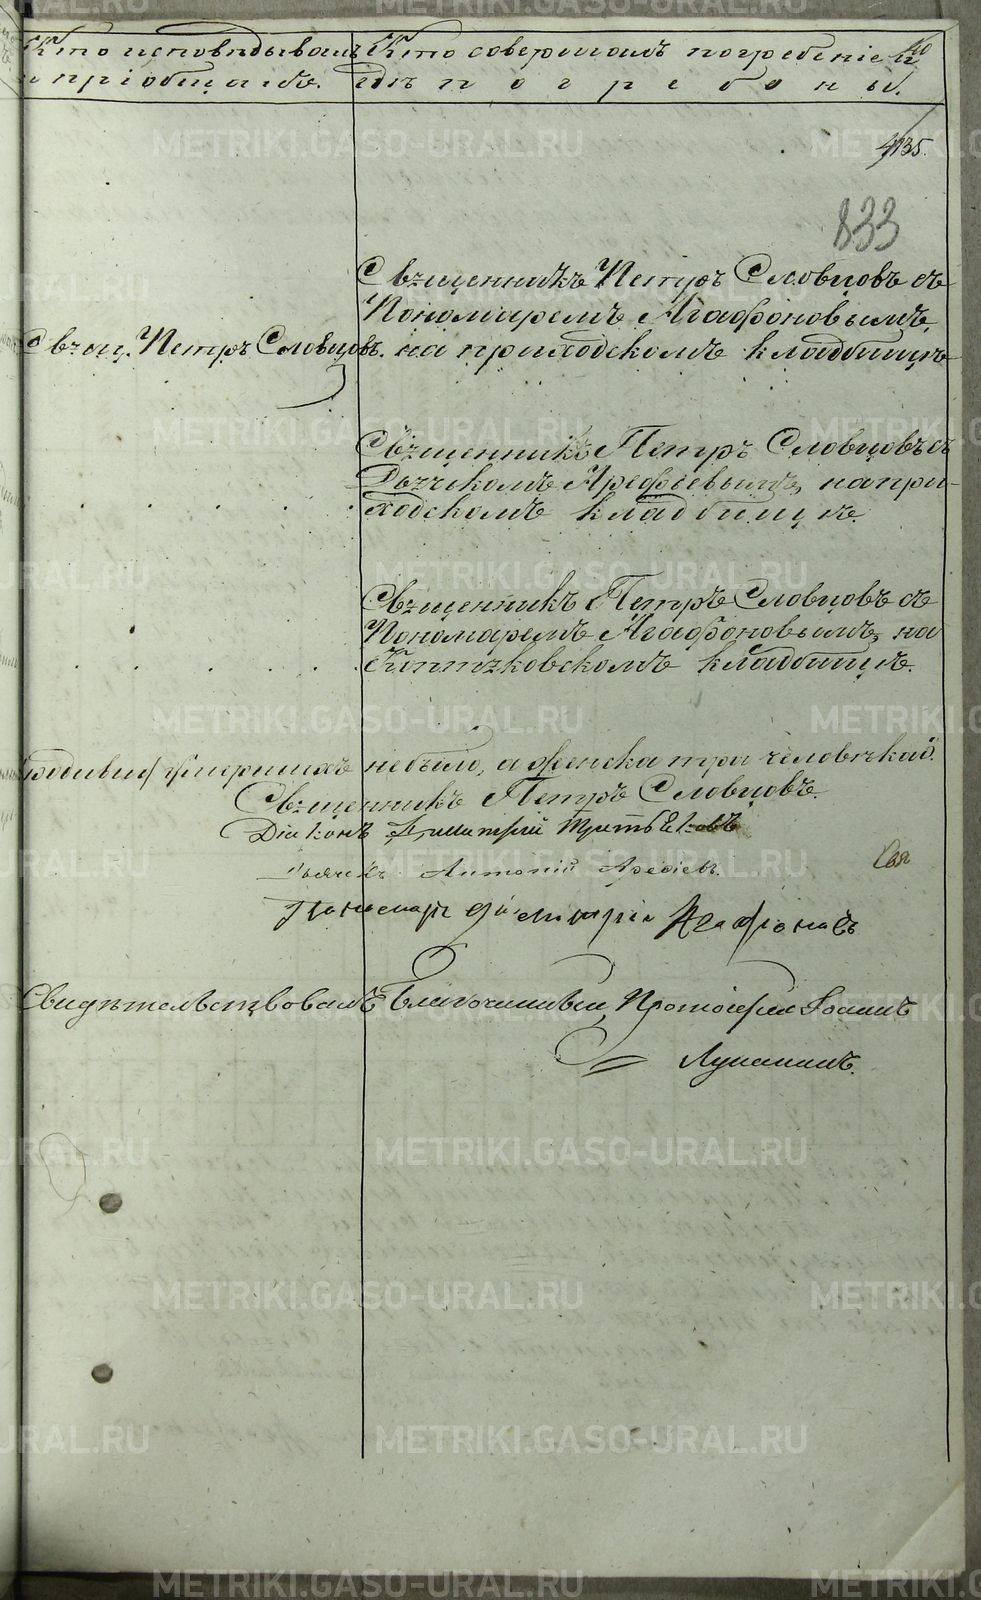 Кто исповѣдывалъ
и пріобщалъ.
Кто совершалъ погребеніе и
гдѣ погребены.
833
Священникъ Петръ Словцовъ съ
Пономаремъ Агафоновымъ,
на приходскомъ кладбищѣ
Свящ. Петръ Словцовъ.
Священникъ Петръ Словцовъ съ
Дьячкомъ Арефьевымъ, на при-
ходскомъ кладбищѣ.
Священникъ Петръ Словцовъ съ
Пономаремъ Агафоновымъ, на
кладбищѣ.
умершихъ не было, а женска три человѣка
Священникъ Петръ Словцовъ.
Діаконъ Димитрій
Дьячекъ Антоній Арефіевъ.
Пономарь Димитрій Агафоновъ
Свидѣтельствовалъ Благочинный, Протоіерей Іоаннъ
METRIKI.GASO-URAL.RU